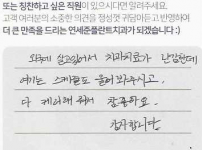 또는 칭찬하고 싶은 직원이 있으시다면 알려주세요.
고객 여러분의 소중한 의견을 정성껏 귀담아듣고 반영하여
더 큰 만족을 드리는 연세준플란트치과가 되겠습니다 :)
외국에 살고있어서 치과치료가 난감한데
여기는 스케줄도 물어봐주시고.
다 케어해 줘서 감동하고
감사합니다